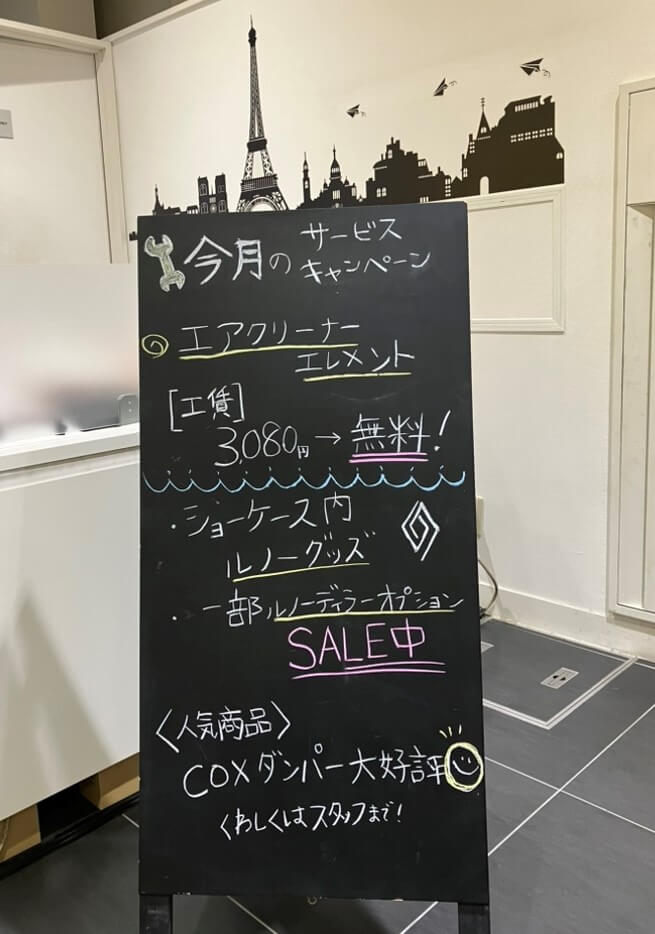 今月の サービス
キャンペーン
エアクリーナー
エレメント
[工賃]
3,080円→無料!
・ショーケース内
ルノーグッズ
・一部ルノーディラーオプション
SALE中
〈人気商品〉
COXダンパー大好評
くわしくはスタッフまで!